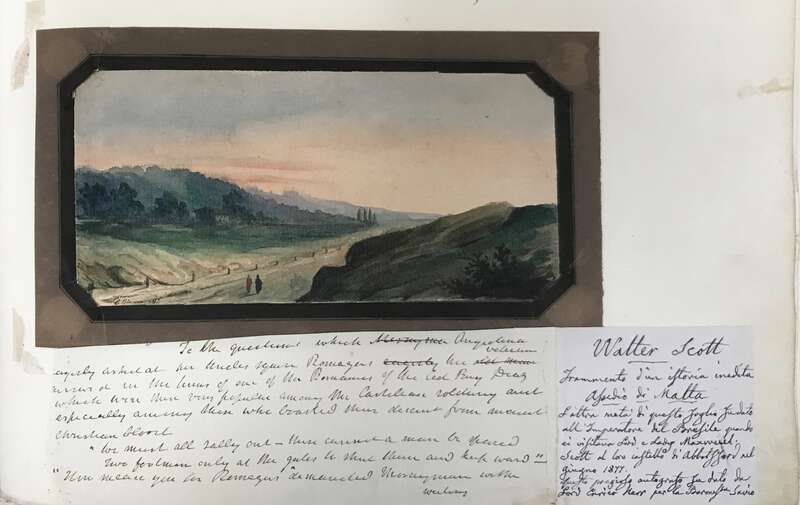 To the questions which Angelina
eagerly asked at her Uncles Squire Romagers he
answerd in the lines of one of the Romances of the Cid Ruy Diaz
which were then very popular among the Castilian soldiery and
especially among those who boasted their descent from ancient
christian blood
"We must all sally out – there cannot a man be spared
Two footmen only at the gates to shut them and keep ward"
"How mean you Sir Romagers" demanded Morayma with
Walter Scott
Frammento d'un istoria inedita
Assedio di Malta
L'altra metà di questo foglio fu dato
all'Imperatore del Brasile quando
ei visitava Lord e Lady Maxwell
Scott al loro castello di Abbotsford nel
giugno 1877.
Questo pregiato autografo fu dato da
Lord Enrico Kerr per la Baronessa Savio